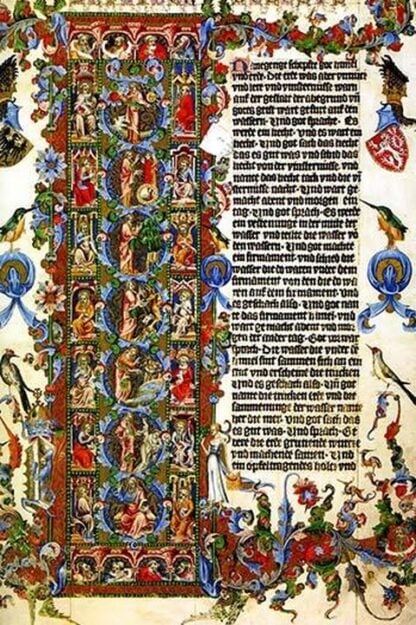 anegenge schepfte got himel
vnd erde. Die erde was aber
vnd ler vnd vinsternisse warn
auf der gestalt der abgrund vnd
gotes geist wart gefurt auf den
wassern. Vnd got sprach. Es
werde ein liecht. vnd es wart ein
liecht. Vnd got sach das liecht
das es gut was vnd schid das
liecht von der vinsternisse. vnd
nante das liecht tack vnd die vi
sternisse nacht. Vnd wart ge
macht abent vnd morgen ein
tag. Vnd got sprach. Es werde
ein vestenunge in der mitte der
wasser vnd teile die wasser vo
den wassern. Vnd got machte
ein firmament. vnd schied die
wasser die da waren vnder dem
firmament von den die do wa
ren auf dem firmament. Vnd
es geschach also. Vnd got nan
te das firmament himel. vnd
wart gemacht abent vnd mor
gen der ander tag. Got vorwar
sprach. Die wasser die vnder de
himel sint sammen sich an ein
stat vnd erscheine die trucken
Vnd es geschach also. Vn got
nante die trucken erde vnd die
sammenunge der wasser nante
her die mer. vnd got sach das
es gut was. Vnd sprach. Es
die erde grunende wurcze
vnd machende samen. Vnd
ein opfeltragendes holcz vnd